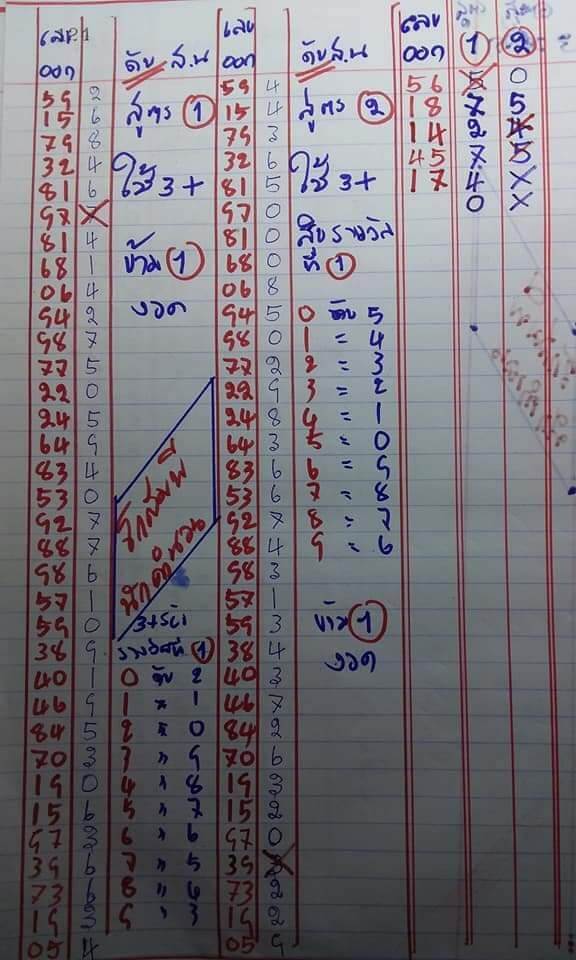 เลข
ออก
59 2
15 6
79 8
32 4
81 6
97
81 4
68 1
06 4
94 2
98 7
77 5
22 0
24 5
64 9
83 4
53 0
92 7
88 7
98 6
57 1
59 0
38 9
40 1
46 9
84 5
70 3
19 0
15 6
97 3
39 6
73 6
19 3
05 4
ดับ ส.น
สูตร 1
ใช้ 3+
ข้าม 1
งวด
นักคำนวน
3+รับ
รางวัลที่ 1
0 ดับ 2
1 " 1
2 " 0
3 " 9
4 " 8
5 " 7
6 " 6
7 " 5
8 " 4
9 " 3
เลข
ออก
59 4
15 4
79 3
32 6
81 5
97 0
81 0
68 0
06 8
94 5
98 0
77 2
22 9
24 8
64 3
83 6
53 6
92 7
88 4
98 3
57 1
59 3
38 4
40 3
46 7
84 2
70 6
19 3
15 2
97 0
39
73 2
19 2
05 9
ดับ ส.น
สูตร 2
ใช้ 3+
สิบรางวัล
ที่ 1
0 ดับ 5
1 = 4
2 = 3
3 = 2
4 = 1
5 = 0
6 = 9
7 = 8
8 = 7
9 = 6
ข้าม 1
งวด
เลข
ออก 1 2
56 5 0
18 7 5
14 2 4
45 7 5
17 4 X
0 X